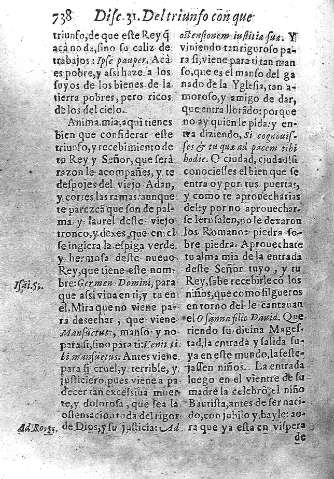 738 Disc. 31. Del triunfo con que
triunfo, de que este Rey q̃
acá no da, sino su caliz de
trabajos: Ipse pauper. Acá
es pobre, y assi haze a los
suyos de los bienes de la
tierra pobres, pero ricos
de los del cielo.
Anima mia, aqui tienes
bien que considerar este
triunfo, y recebimiento de
tu Rey y Señor, que será
razon le acompañes, y te
despojes del viejo Adan,
y cortes las ramas: aunque
te parezcã que son de pal-
ma, y laurel deste viejo
tronco, y dexes, que en el
se ingiera la espiga verde,
y hermosa deste nueuo
Rey, que tiene este nom-
bre: Germen Domini, para
que assi viua en ti, y tu en
el. Mira que no viene para
desechar, que viene
Mansuetus, manso, y no
para si, sino para ti: Venit ti-
bi mansuetus. Antes viene
para si cruel, y terrible, y
justiciero, pues viene a pa-
decer tan excessiua muer-
te, y dolorosa, que sea la
ostensacion toda del rigor
de Dios, y su justicia: Ad
Isai. 52.
Ad Ro. 3.
ostensionem iustitiæ suæ. Y
viniendo tan riguroso pa-
ra si, viene para ti tan man-
so, que es el manso del ga-
nado de la Yglesia, tan a-
moroso, y amigo de dar,
que entra llorãdo; porque
no ay quien le pida; y en-
tra diziendo, Si cognouis-
ses & tu quæ ad pacem tibi
hodie. O ciudad, ciudad si
conociesses el bien que se
entra oy por tus puertas,
y como te aprouecharias
del! y por no aprouechar-
se Ierusalen, no le dexaron
los Romanos piedra so-
bre piedra. Aprouechate
tu alma mia de la entrada
deste Señor tuyo, y tu
Rey, sabe recebirle cõ los
niños, que como silgueros
en torno del le cantauan
el Osanna filio Dauid. Que
riendo su diuina Mages-
tad, la entrada y salida su-
ya en este mundo, la feste-
jassen niños. La entrada
luego en el vientre de su
madre la celebró el niño
Bautista, antes de ser naci-
do, con jubilo y bayle: ao-
ra que ya está en vispera
de